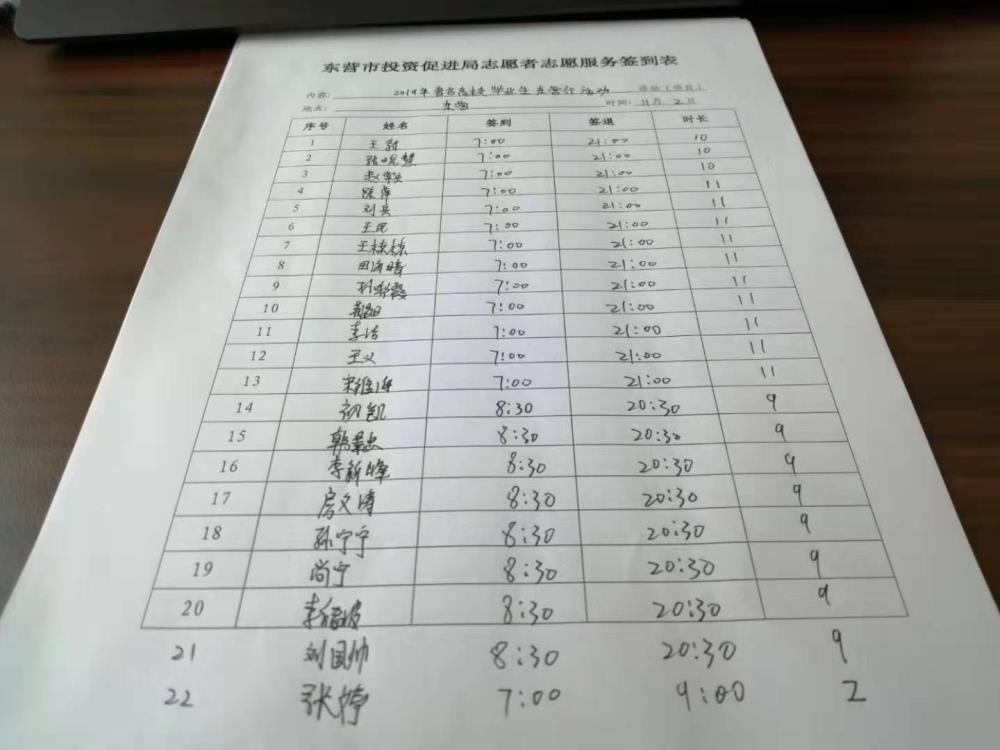 东营市投资促进局志愿者志愿服务签到表
内容: 2019年著名高校毕业生东营行活动 活动(项目)
地点: 东营 时间: 11月2日
序号 姓名 签到 签退 时长
1 王蔚 7:00 21:00 10
2 张晓慧 7:00 21:00 10
3 赵 7:00 21:00 10
4 陈萍 7:00 21:00 11
5 刘兵 7:00 21:00 11
6 王 7:00 21:00 11
7 王栋栋 7:00 21:00 11
8 田海晴 7:00 21:00 11
9 霞 7:00 21:00 11
10 7:00 21:00 11
11 李洁 7:00 21:00 11
12 王义 7:00 21:00 11
13 宋 7:00 21:00 11
14 初凯 8:30 20:30 9
15 韩景忠 8:30 20:30 9
16 李新峰 8:30 20:30 9
17 房文涛 8:30 20:30 9
18 孙宁宁 8:30 20:30 9
19 尚宁 8:30 20:30 9
20 李 波 8:30 20:30 9
21 刘国帅 8:30 20:30 9
22 张婷 7:00 9:00 2